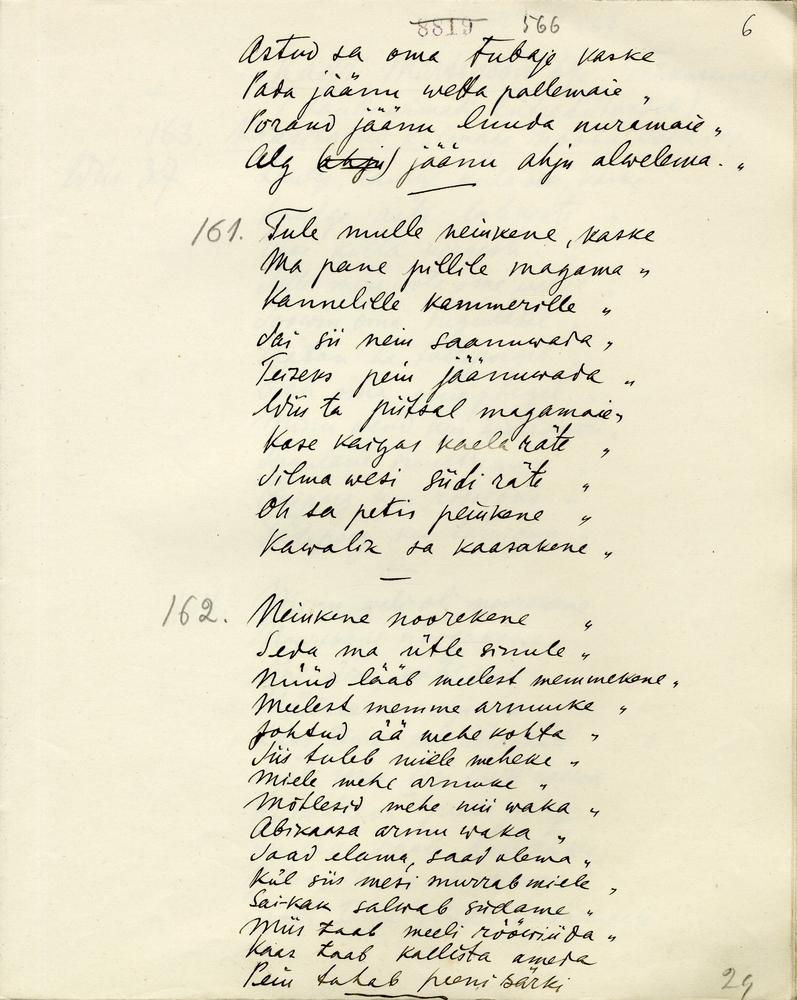 8819 566 6
Astud sa oma tubaje kaske
Pada jäänu wetta pallemaie "
Porand jäänu luuda nuramaie "
Alg (ahju) jäänu ahju alwelema. "
161. Tule mulle neiukene, kaske
Ma pane pillile magama "
Kannelille kammerille "
Sai sii nein saanuwada "
Teizeks pein jäänuwada "
Wiis ta piitsal magamaie "
Kase kaigas kaela räte "
Silma wesi siidi räte "
Oh sa petis peiukene "
Kawalik sa kaasakene "
162. Neiukene noorekene "
Seda ma ütle sinule "
Nüüd lääb meelest memmekene "
Meelest memme armuke "
Johtud ää mehe kohta "
Siis tuleb miele meheke "
Miele mehe armuke "
Mõtlesid mehe nii waka "
Abikaasa armu waka "
Saad elama, saad olema "
Kül siis mesi murrab miele "
Sai-kak salwab südame "
Miis taab meeli rööwiida "
Kaas taab kallista ameda
Pein tahab peeni särki
29